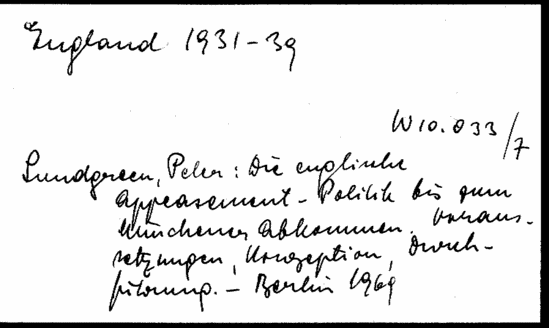 England 1931-39
W 10.033/7
Lundgreen, Peter: Die englische
Appeasement-Politik bis zum
Münchener Abkommen. Voraus-
setzungen, Konzeption, Durch-
führung. - Berlin 1969